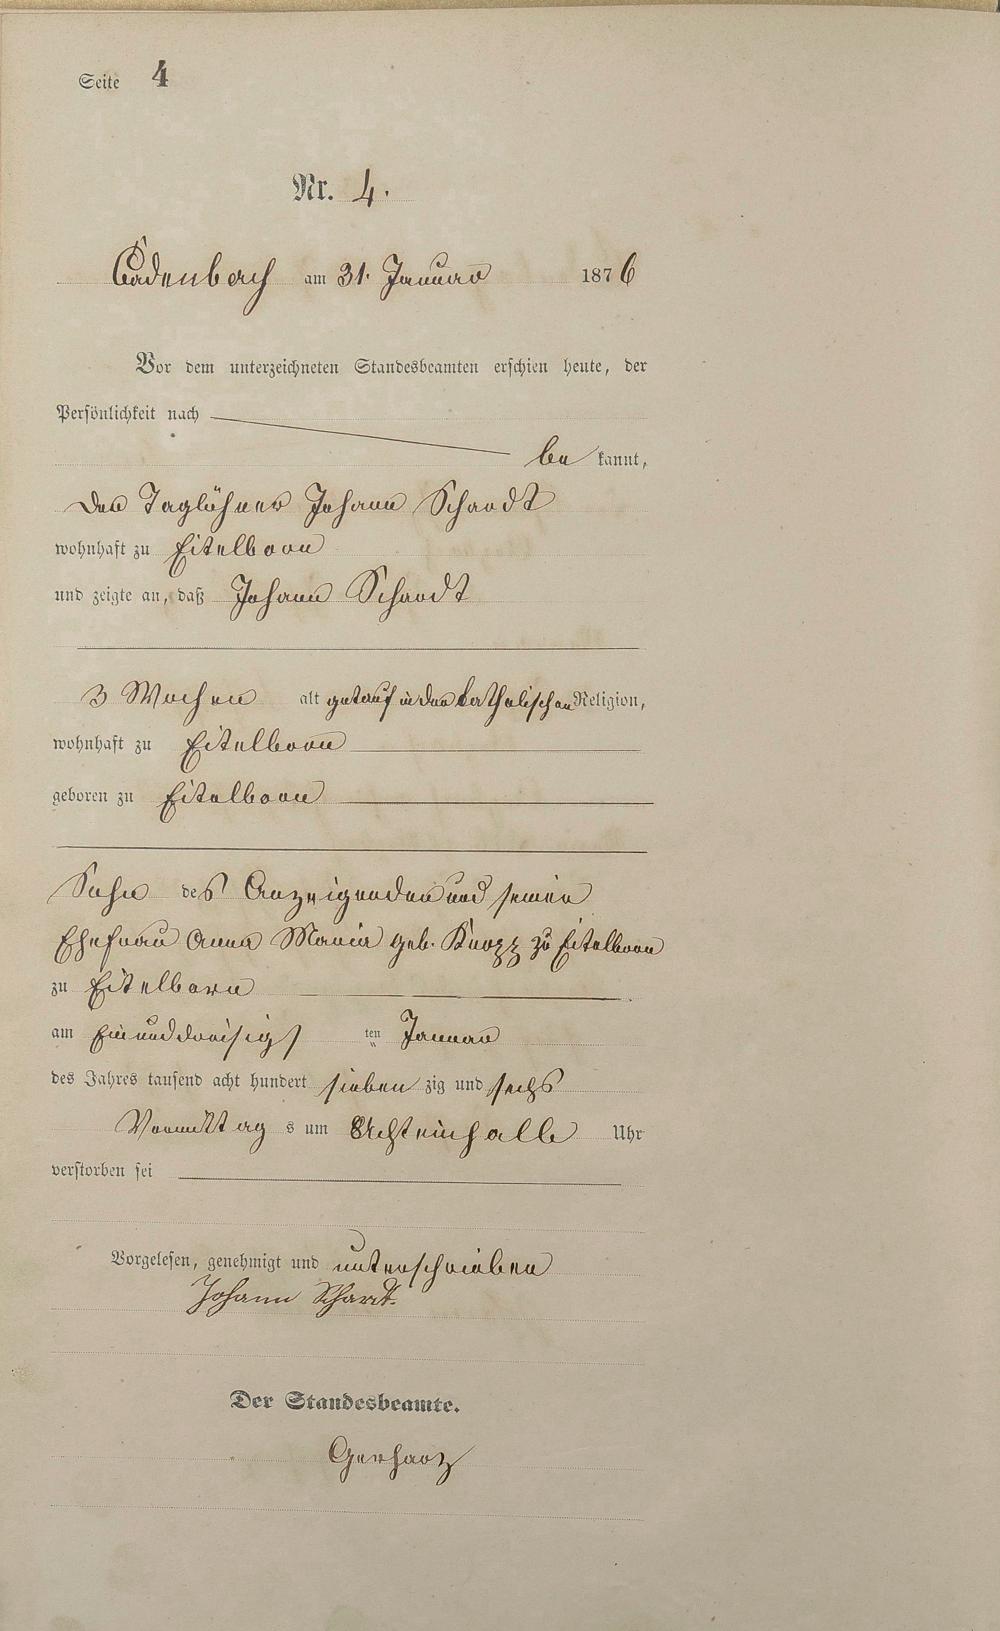 Seite 4
Nr. 4.
Cadenbach am 31. Januar 1876
Vor dem unterzeichneten Standesbeamten erschien heute, der
Persönlichkeit nach
be kannt,
der Taglöhner Johann Schardt
wohnhaft zu Eitelborn
und zeigte an, daß Johann Schardt
3 Wochen alt getauf in der katholischen Religion,
wohnhaft zu Eitelborn
geboren zu Eitelborn
Sohn des Anzeigenden und seiner
Ehefrau Anna Maria geb. Knopp zu Eitelborn
zu Eitelborn
am Einunddreisigs ten Januar
des Jahres tausend acht hundert sieben zig und sechs
Vormittag s um Achteinhalb Uhr
verstorben sei
Vorgelesen, genehmigt und unterschrieben
Johann Schardt.
Der Standesbeamte.
Gerharz